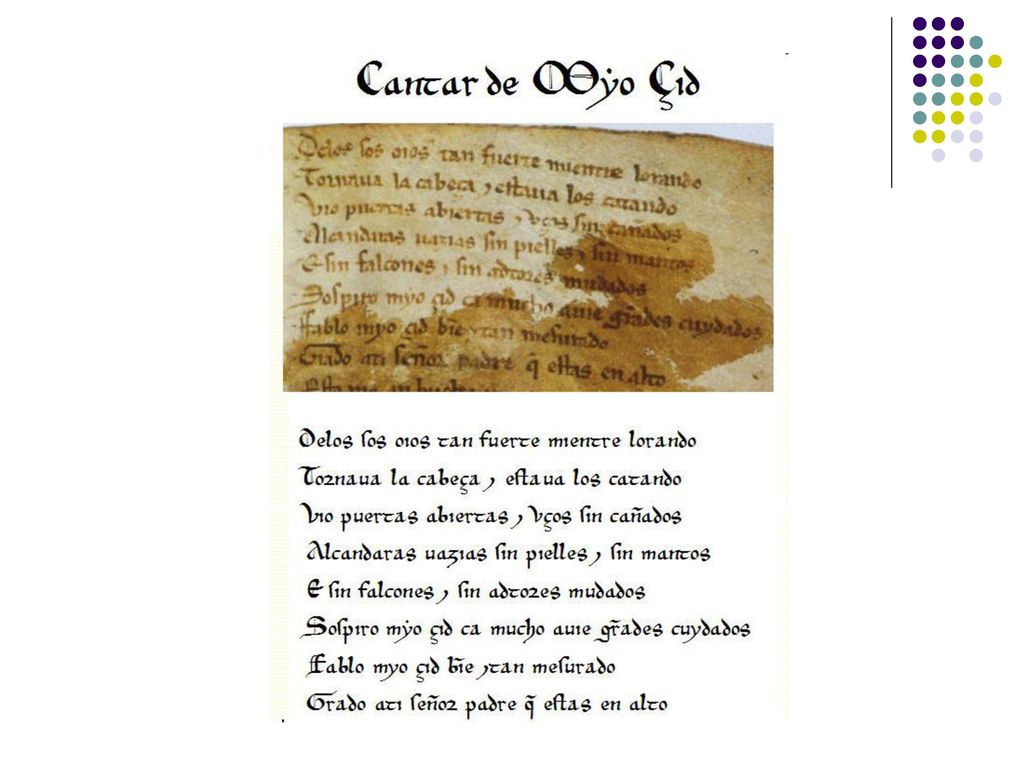 Cantar de Myo Çid
Delos sos oios tan fuerte mientre lorando
Tornaua la cabeça ⁊ estuua los catando
Vio puertas abiertas ⁊ vços sin cañados
Alcandaras uazias sin pielles ⁊ sin mantos
E sin falcones ⁊ sin adtores mudados
Sospiro myo çid ca mucho auie gr̃ades cuydados
Ffablo myo çid bĩe ⁊ tan mesurado
Grado ati señor padre q̃ estas en alto
Delos sos oios tan fuerte mientre lorando
Tornaua la cabeça ⁊ estaua los catando
Vio puertas abiertas ⁊ vços sin cañados
Alcandaras uazias sin pielles ⁊ sin mantos
E sin falcones ⁊ sin adtores mudados
Sospiro mẏo çid ca mucho auie gr̃ades cuydados
Ffablo myo çid bĩe ⁊ tan mesurado
Grado ati señor padre q̃ estas en alto